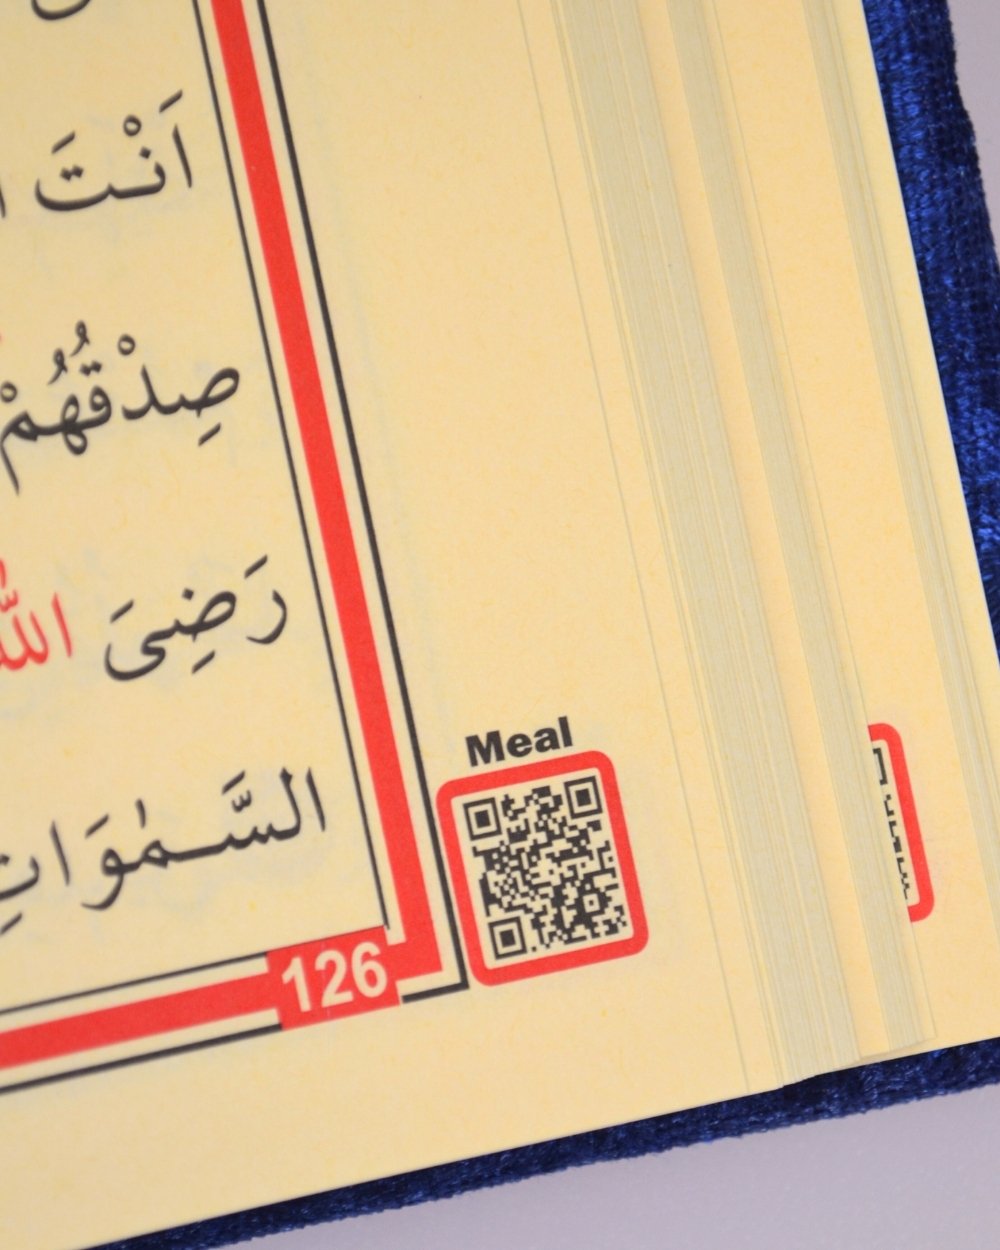 اَنْتَ
صِدْقُهُمْ
رَضِىَ اللّٰهُ
السَّمٰوَاتِ
126
Meal